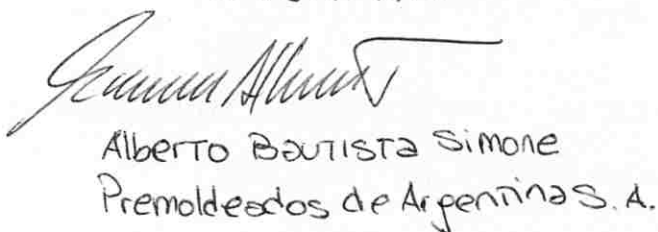 Alberto Bautista Simone
Premoldeados de Argentina S. A.